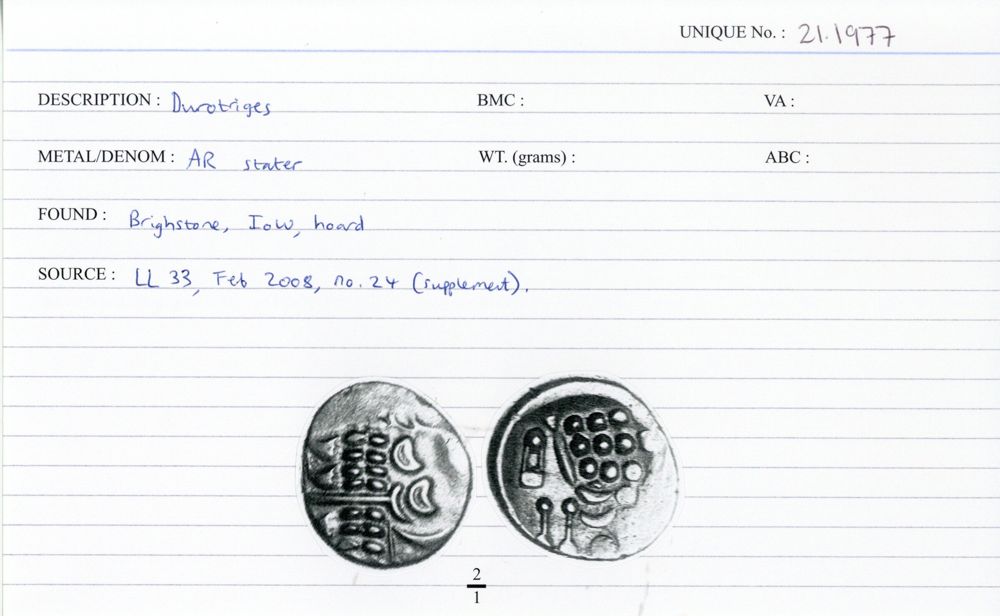 UNIQUE No. : 21.1977
DESCRIPTION : Durotriges BMC : VA :
METAL/DENOM : AR stater WT. (grams) : ABC :
FOUND : Brighstone, IoW, hoard
SOURCE : LL 33, Feb 2008, no. 24 (supplement).
2
1